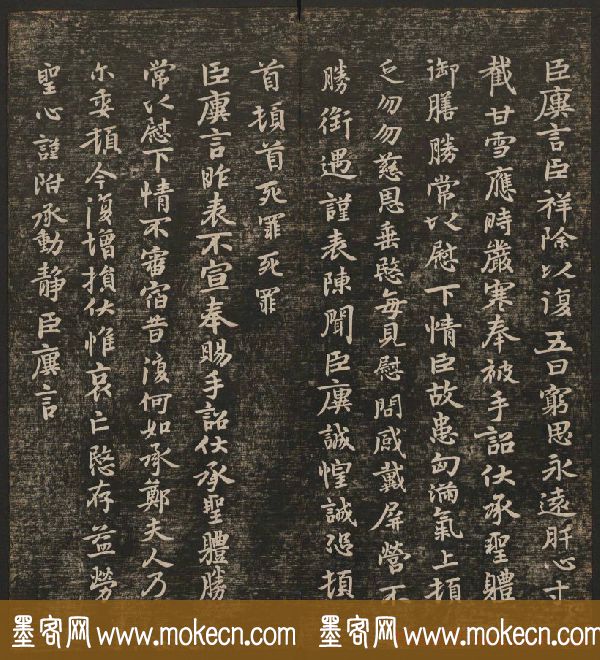 臣廙言臣祥除以復五日窮思永遠肝心寸
截甘雪應時嚴寒奉被手詔伏承聖體
御膳勝常以慰下情臣故患匈滿氣上頓
乏勿勿慈恩垂愍每見慰問感戴屏營不
勝銜遇謹表陳聞臣廙誠惶誠恐頓
首頓首死罪死罪
臣廙言昨表不宣奉賜手詔伏承聖體勝
常以慰下情不審宿昔復何如承鄭夫人乃
尒委頓今復增損伏惟哀亡愍存益勞
聖心謹附承動靜臣廙言
墨客网 www.mokecn.com 墨客网 www.mokecn.com